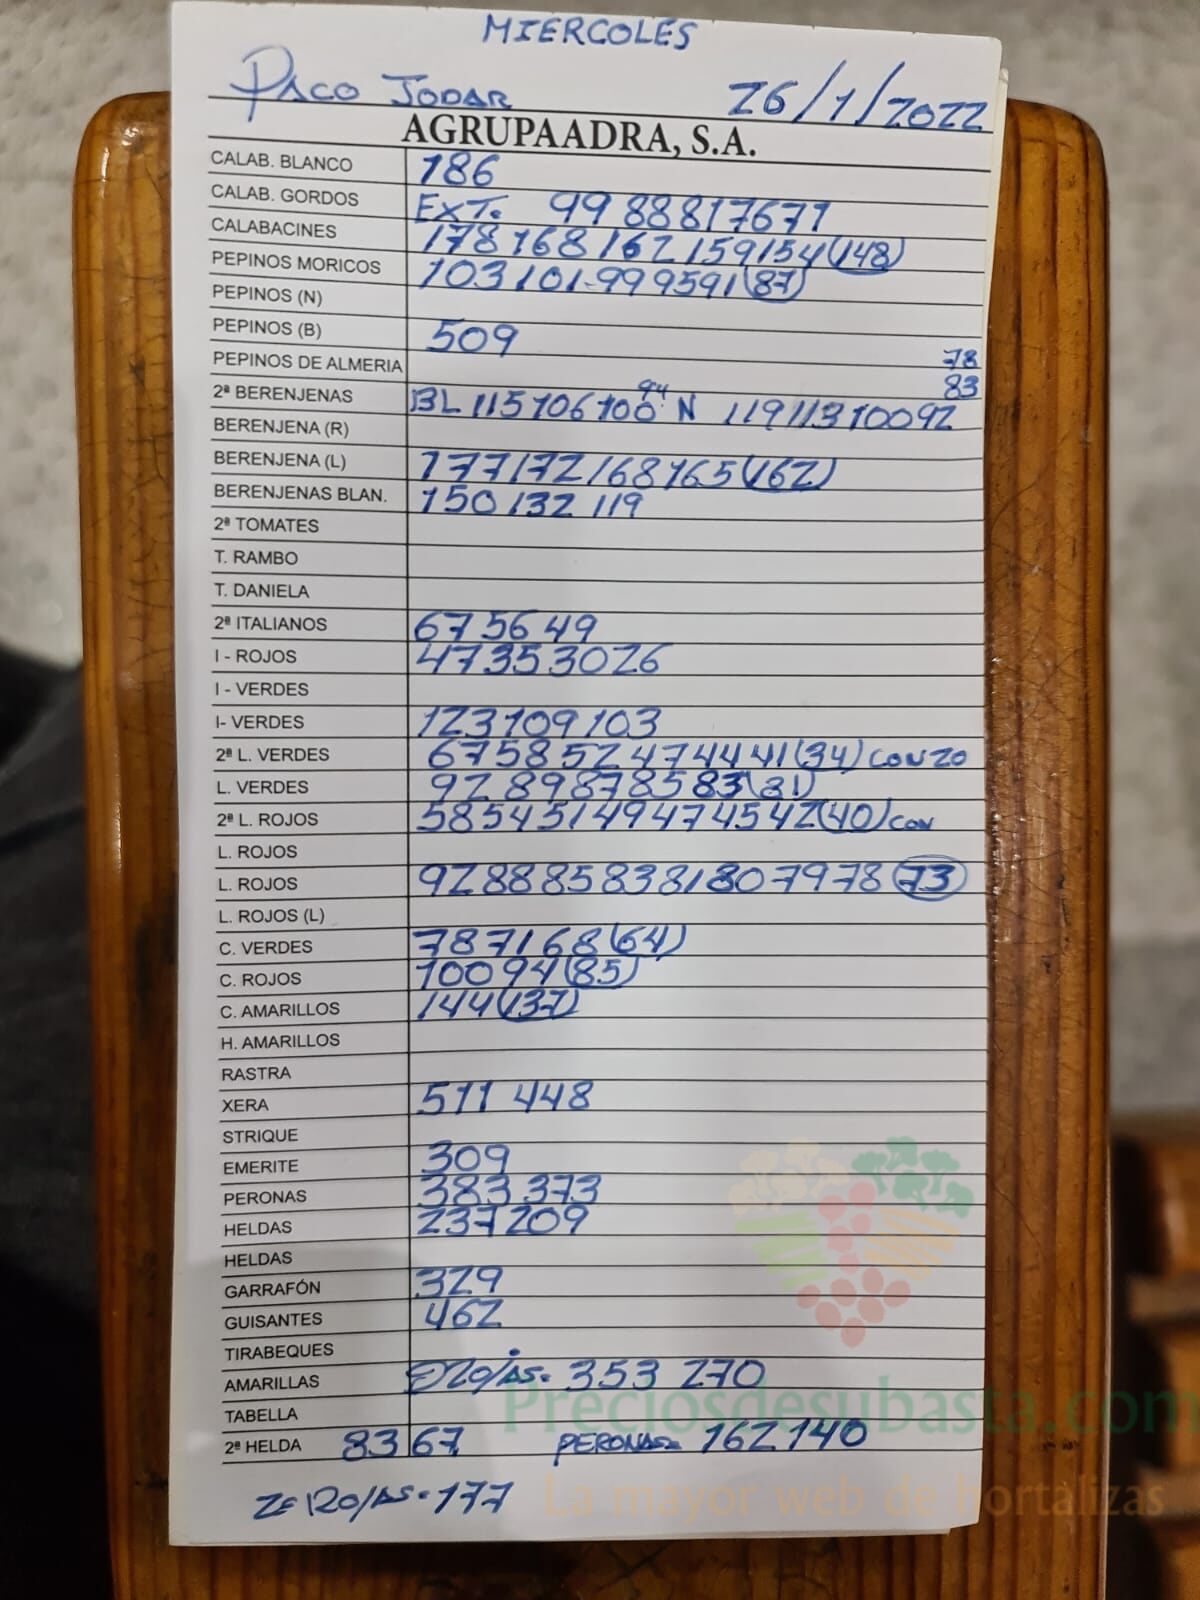 MIERCOLES
PACO JODAR 26/1/2022
AGRUPAADRA, S.A.
CALAB. BLANCO 186
CALAB. GORDOS EXT. 99 88 81 76 71
CALABACINES 178 168 162 159 154 (148)
PEPINOS MORICOS 103 101-99 95 91 (87)
PEPINOS (N)
PEPINOS (B) 509
PEPINOS DE ALMERIA 78
83
2ª BERENJENAS BL 115 106 100 94 N 119 113 100 92
BERENJENA (R)
BERENJENA (L) 177 172 168 165 (162)
BERENJENAS BLAN. 150 132 119
2ª TOMATES
T. RAMBO
T. DANIELA
2ª ITALIANOS 67 56 49
I - ROJOS 47 35 30 26
I - VERDES
I- VERDES 123 109 103
2ª L. VERDES 67 58 52 47 44 41 (34) CON 20
L. VERDES 92 89 87 85 83 (81)
2ª L. ROJOS 58 54 51 49 47 45 42 (40) CON
L. ROJOS
L. ROJOS 92 88 85 83 81 80 79 78 (73)
L. ROJOS (L)
C. VERDES 78 71 68 (64)
C. ROJOS 100 94 (85)
C. AMARILLOS 144 (137)
H. AMARILLOS
RASTRA
XERA 511 448
STRIQUE
EMERITE 309
PERONAS 383 373
HELDAS 237 209
HELDAS
GARRAFÓN 329
GUISANTES 462
TIRABEQUES
AMARILLAS 353 270
TABELLA
2ª HELDA 83 67 PERONAS 162 140
177
Preciosdesubasta.com
La mayor web de hortalizas